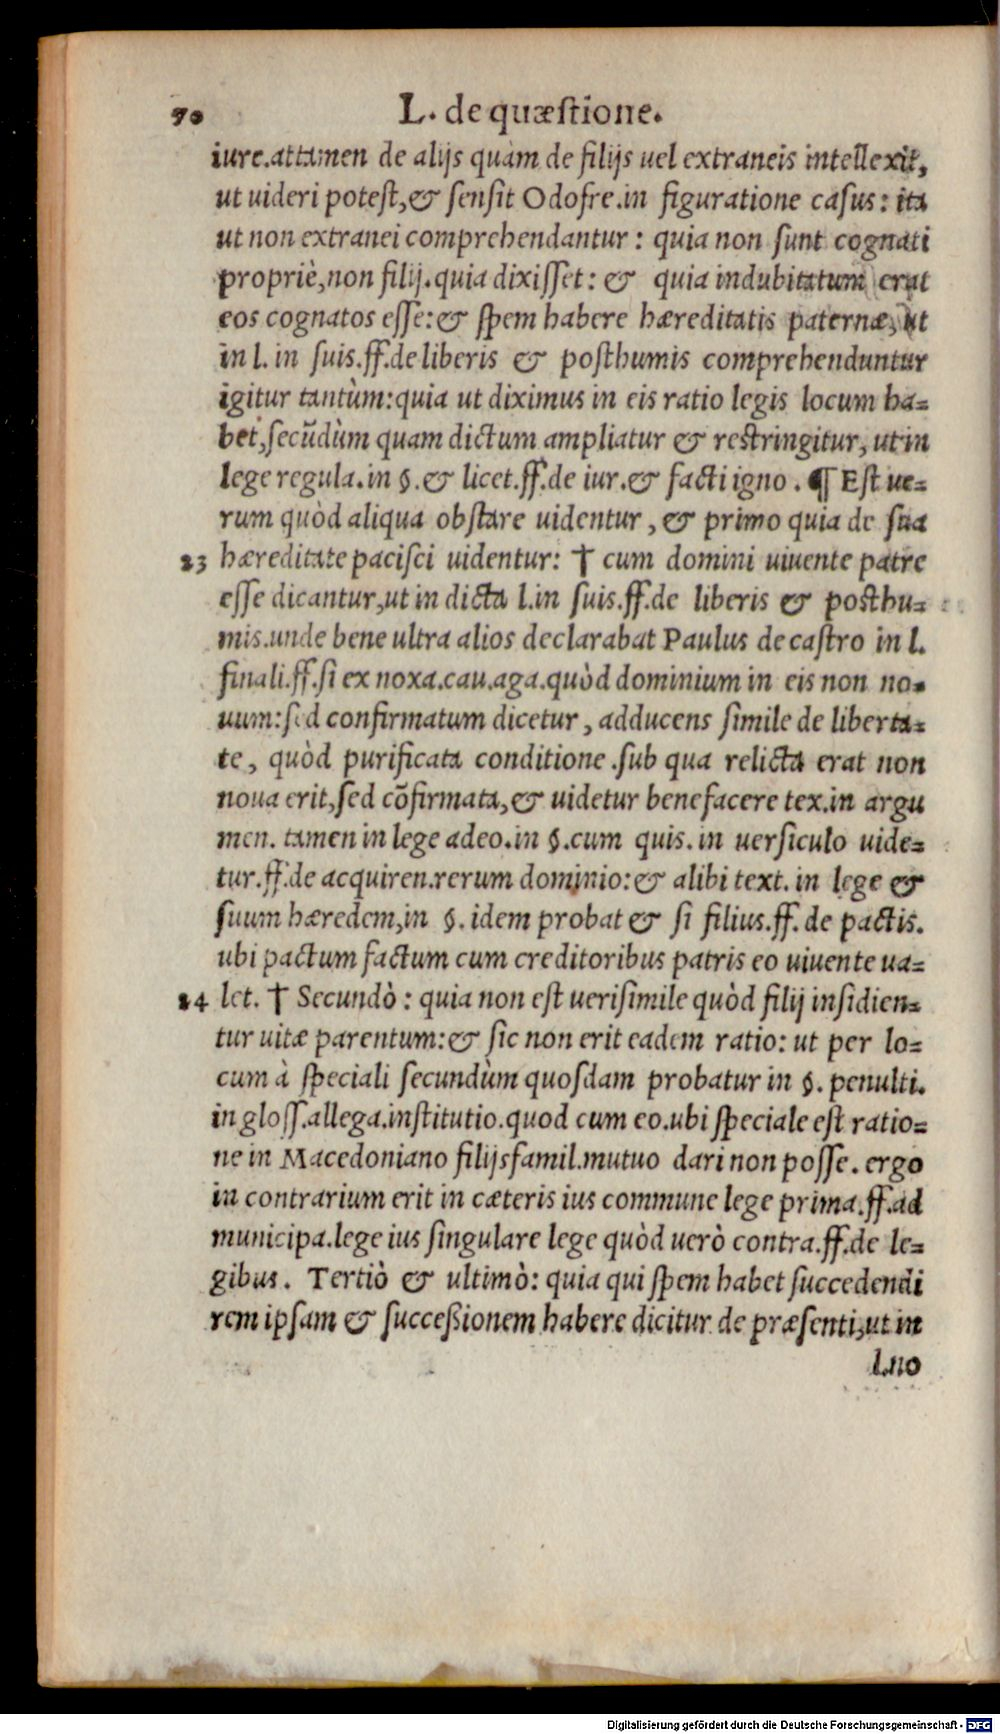 70 L. de quæstione.
iure.attamen de alijs quàm de filijs uel extraneis intellexit,
ut uideri potest,& sensit Odofre.in figuratione casus: ita
ut non extranei comprehendantur: quia non sunt cognati
propriè,non filij.quia dixisset: & quia indubitatum erat
eos cognatos esse:& spem habere hæreditatis paternæ, ut
in l. in suis.ff.de liberis & posthumis comprehenduntur
igitur tantùm:quia ut diximus in eis ratio legis locum ha=
bet,secũdùm quam dictum ampliatur & restringitur, ut in
lege regula.in §.& licet.ff.de iur.& facti igno. ¶ Est ue=
rum quòd aliqua obstare uidentur, & primo quia de sua
23 hæreditate pacisci uidentur: † cum domini uiuente patre
esse dicantur,ut in dicta l.in suis.ff.de liberis & posthu=
mis.unde bene ultra alios declarabat Paulus de castro in l.
finali.ff.si ex noxa.cau.aga.quòd dominium in eis non no=
uum:sed confirmatum dicetur, adducens simile de liberta=
te, quòd purificata conditione .sub qua relicta erat non
noua erit,sed cõfirmata,& uidetur benefacere tex.in argu
men. tamen in lege adeo.in §.cum quis. in uersiculo uide=
tur.ff.de acquiren.rerum dominio:& alibi text. in lege &
suum hæredem,in §. idem probat & si filius.ff. de pactis.
ubi pactum factum cum creditoribus patris eo uiuente ua=
24 let. † Secundò: quia non est uerisimile quòd filij insidien=
tur uitæ parentum:& sic non erit eadem ratio: ut per lo=
cum à speciali secundùm quosdam probatur in §. penulti.
in gloss.allega.institutio.quod cum eo.ubi speciale est ratio=
ne in Macedoniano filijsfamil.mutuo dari non posse. ergo
in contrarium erit in cæteris ius commune lege prima.ff.ad
municipa.lege ius singulare lege quòd uerò contra.ff.de le=
gibus. Tertiò & ultimò: quia qui spem habet succedendi
rem ipsam & succeßionem habere dicitur de præsenti,ut in
l.no
Digitalisierung gefördert durch die Deutsche Forschungsgemeinschaft - DFG